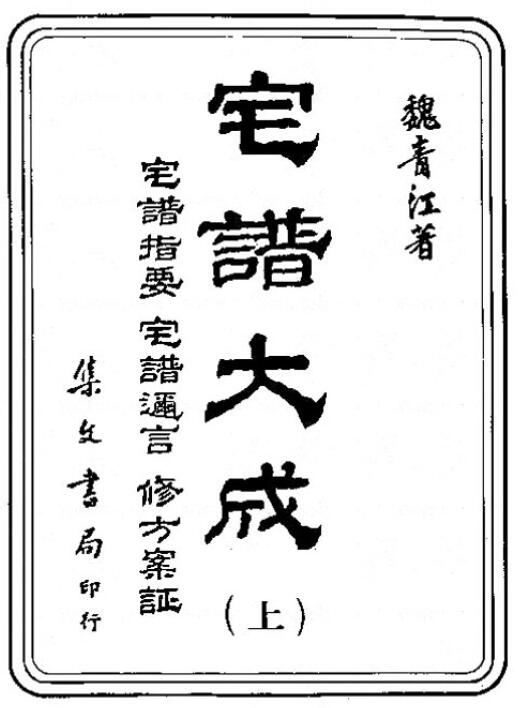 魏青江著
宅譜大成
(上)
宅譜指要 宅譜邇言 修方案証
集文書局印行